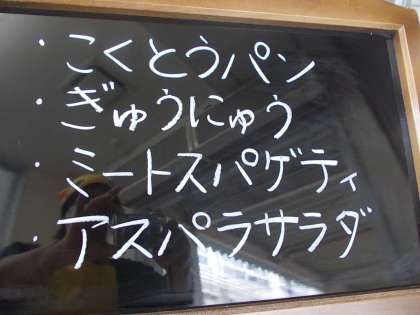 ・こくとうパン
・ぎゅうにゅう
・ミートスパゲティ
・アスパラサラダ